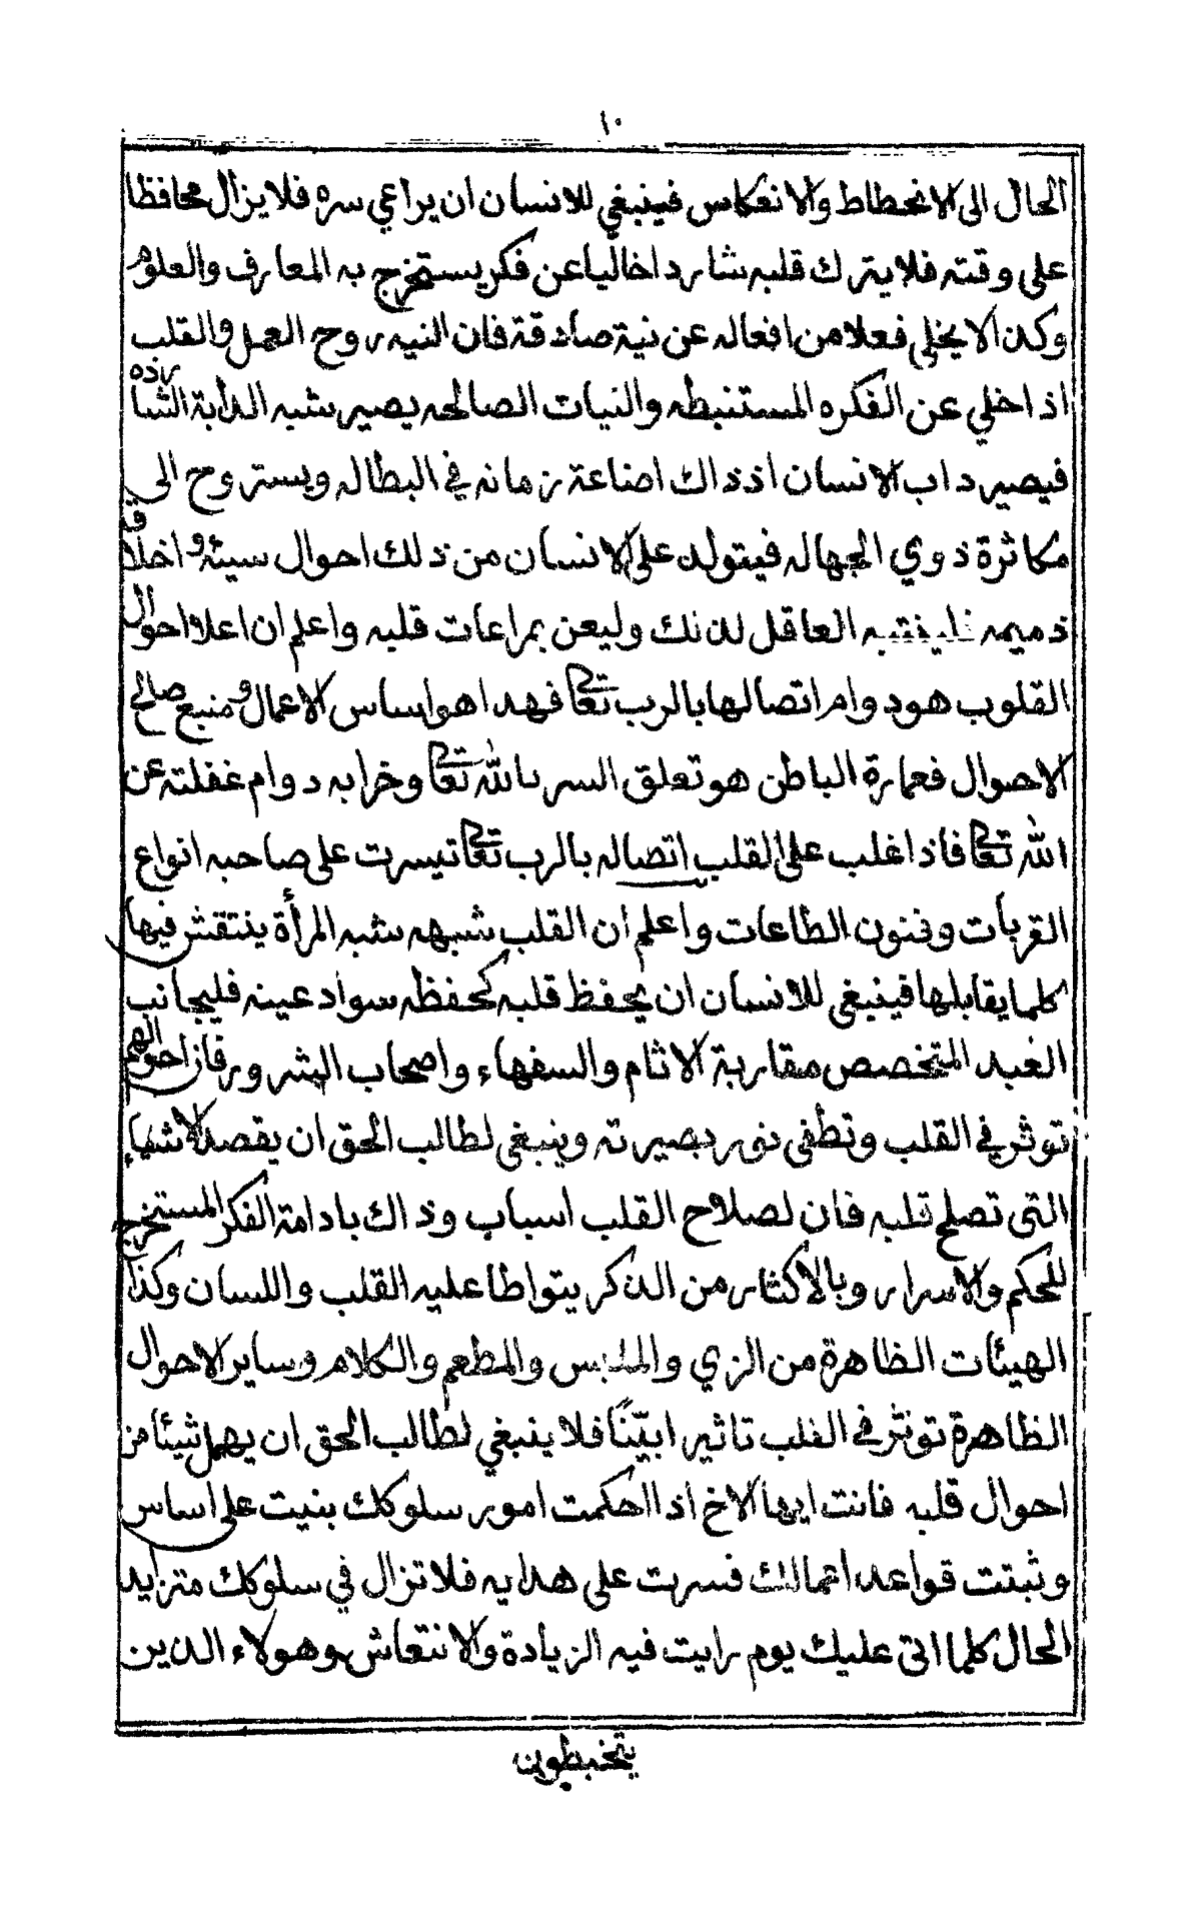 ١٠
الحال الى الانحطاط والانعكاس فينبغي للانسان ان يراعي سره فلا يزال محافظا
على وقته فلا يترك قلبه شاردا خاليا عن فكر يستخرج به المعارف والعلوم
وكذا لا يخلي فعلا من افعاله عن نية صادقة فان النيه روح العمل والقلب
اذا خلي عن الفكره المستنبطه والنيات الصالحه يصير شبه الدابة الشارده
فيصير داب الانسان اذ ذاك اضاعة زمانه في البطاله ويستروح الى
مكاثرة ذوي الجهاله فيتولد على الانسان من ذلك احوال سيئه واخلاق
ذميمه فلينتبه العاقل لذلك وليعن بمراعات قلبه واعلم ان اعلا احوال
القلوب هو دوام اتصالها بالرب تعالى فهذا هو اساس الاعمال ومنبع صالح
الاحوال فعمارة الباطن هو تعلق السر بالله تعالى وخرابه دوام غفلته عن
الله تعالى فاذا غلب على القلب اتصاله بالرب تعالى تيسرت على صاحبه انواع
القربات وفنون الطاعات واعلم ان القلب شبهه شبه المرأة ينتقش فيها
كلما يقابلها فينبغي للانسان ان يحفظ قلبه كحفظه سواد عينه فليجانب
العبد المتخصص مقاربة الاثام والسفهاء واصحاب الشرور فان احوالهم
توثر في القلب وتطفي نور بصيرته وينبغي لطالب الحق ان يقصد الاشياء
التى تصلح قلبه فان لصلاح القلب اسباب وذاك بادامة الفكر المستخرج
للحكم والاسرار وبالاكثار من الذكر يتواطا عليه القلب واللسان وكذا
الهيئات الظاهرة من الزي والملبس والمطعم والكلام وساير الاحوال
الظاهرة توثر في القلب تاثيرا بيّنًا فلا ينبغي لطالب الحق ان يهمل شيئا من
احوال قلبه فانت ايها الاخ اذا احكمت امور سلوكك بنيت على اساس
وثبتت قواعد اعمالك فسرت على هدايه فلا تزال في سلوكك متزايد
الحال كلما اتى عليك يوم رايت فيه الزيادة والانتعاش وهولاء الذين
يتخبطون